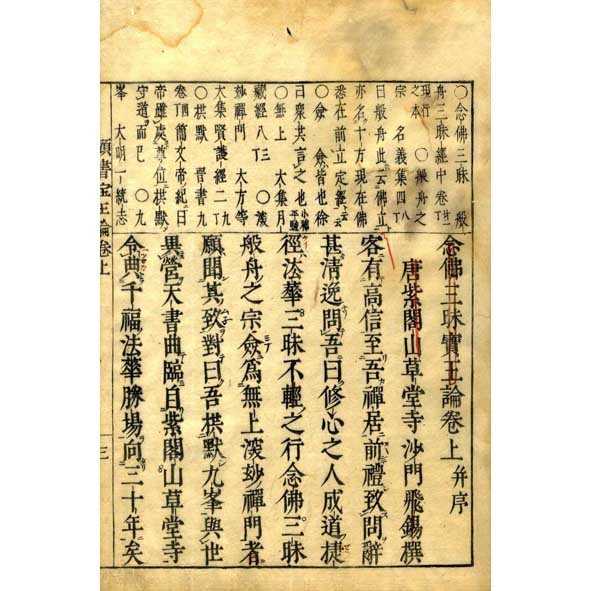 ○念佛三昧　般
舟三昧經中
現行之本　○般舟之
宗　名義集
曰般舟此云佛立
亦名十方現在佛
悉在前立定經云云
○僉　僉皆也徐
曰衆共言之也
○無上　大集月
藏經　○湥
玅禪門　大方等
大集賢護經
○栱默　晉書　九
簡文帝紀曰
帝雖處尊位栱默
守道而已　○九
峯　大明一統志
念佛三昧寶王論卷上并序
唐紫閣山草堂寺沙門飛錫撰
客有高信至吾禪居前禮致問辭
甚淸逸問吾曰修心之人成道捷
徑法華三昧不輕之行念佛三昧
般舟之宗僉爲無上湥玅禪門者
願聞其致對曰吾栱默九峯與世
異營天書曲臨自紫閣山草堂寺
令典千福法華勝場向三十年矣
頭書宝王論卷上　三